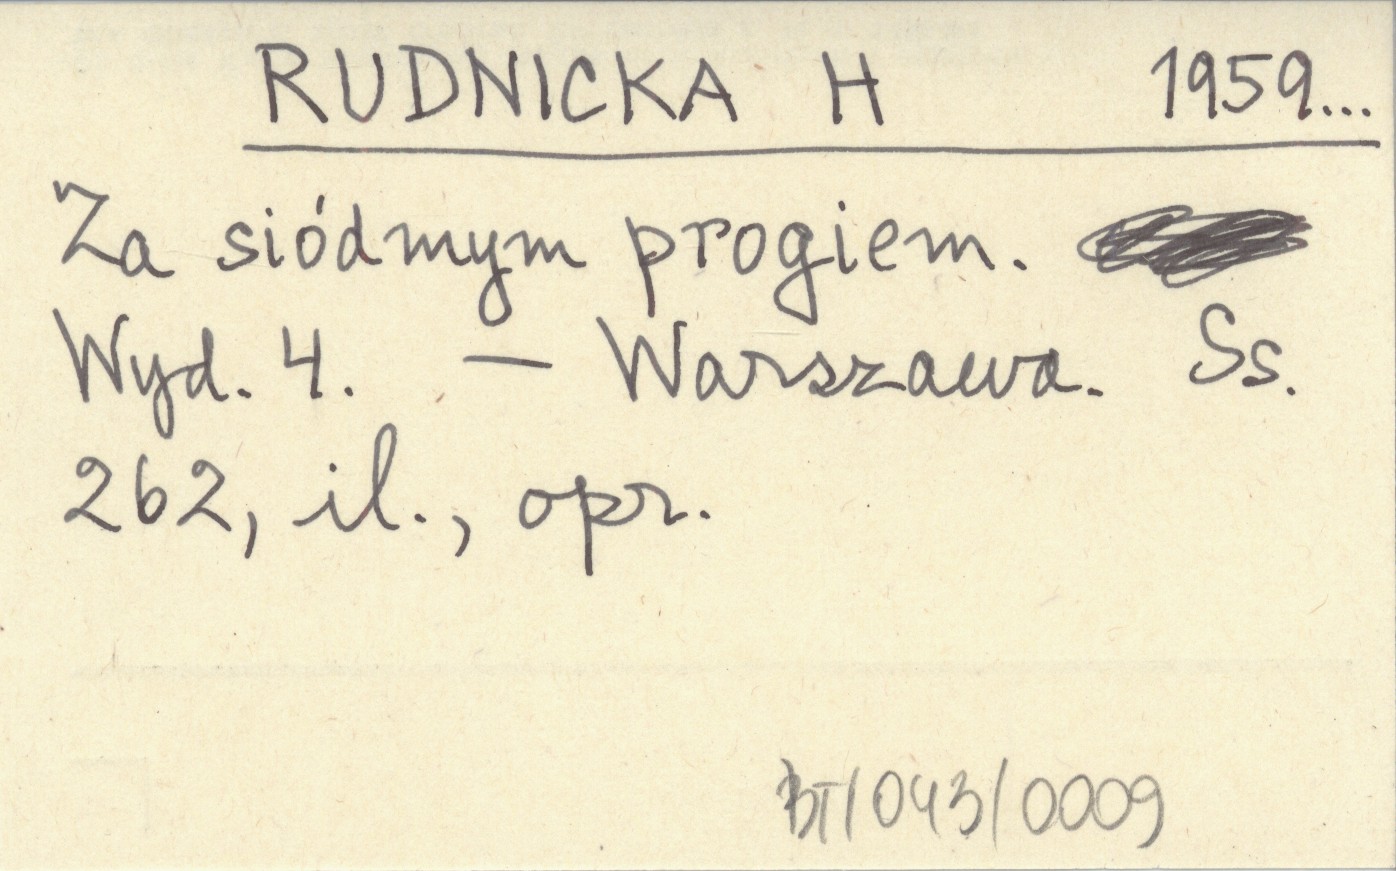 RUDNICKA H 1959...
Za siódmym progiem.
Wyd. 4. — Warszawa. Ss.
262, il., opr.
BT/043/0009